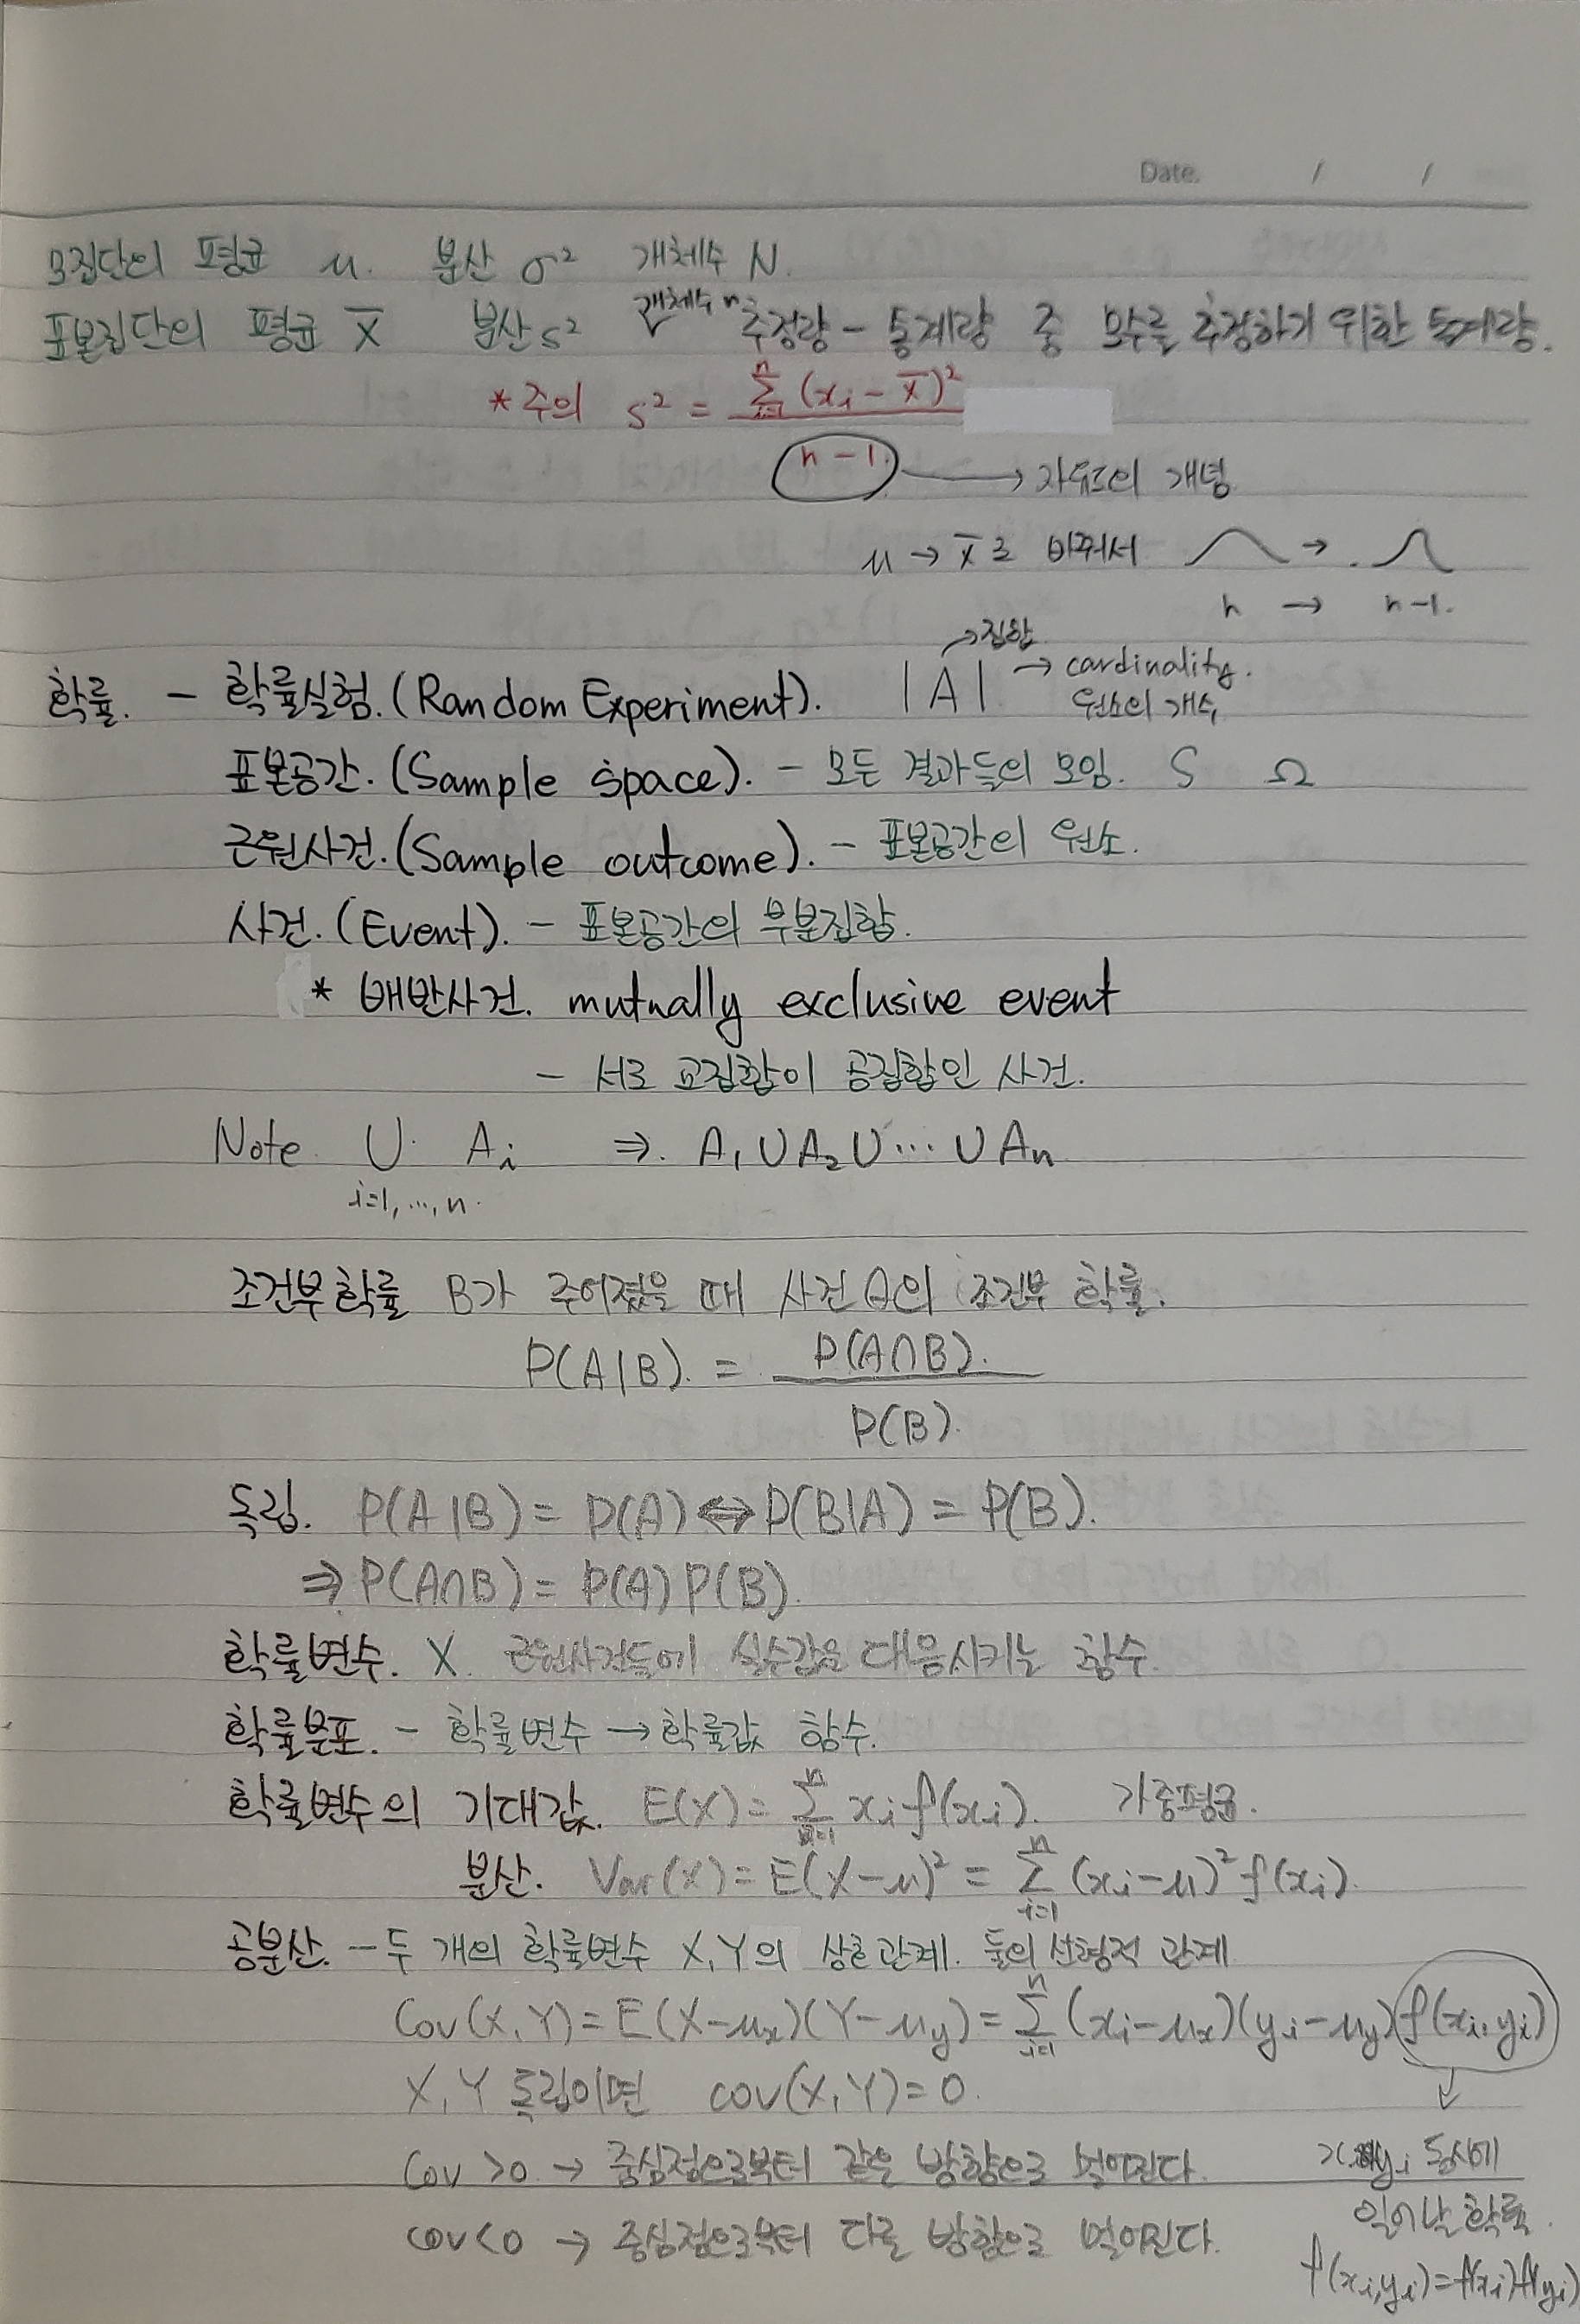 Date. / /
모집단의 평균 μ. 분산 σ² 개체수 N.
표본집단의 평균 x̄ 분산 s² 개체수 n 추정량 - 통계량 중 모수를 추정하기 위한 통계량.
* 주의 s² = Σⁿᵢ₌₁ (xᵢ - x̄)² / n-1. → 자유도의 개념
μ → x̄ 로 바꿔서 →
n → n-1.
→ 집합
확률. - 확률실험. (Random Experiment). |A| → cardinality.
원소의 개수
표본공간. (Sample space). - 모든 결과들의 모임. S Ω
근원사건. (Sample outcome). - 표본공간의 원소.
사건. (Event). - 표본공간의 부분집합.
* 배반사건. mutually exclusive event
- 서로 교집합이 공집합인 사건.
Note ∪ Aᵢ ⇒ A₁∪A₂∪…∪Aₙ
i=1, …, n.
조건부확률 B가 주어졌을 때 사건 A의 조건부 확률.
P(A|B). = P(A∩B). / P(B).
독립. P(A|B) = P(A) ⇔ P(B|A) = P(B).
⇒ P(A∩B) = P(A)P(B).
확률변수. X. 근원사건들에 실수값을 대응시키는 함수.
확률분포. - 확률변수 → 확률값 함수.
확률변수의 기대값. E(X) = Σⁿᵢ₌₁ xᵢ f(xᵢ). 가중평균.
분산. Var(X) = E(X-μ)² = Σⁿᵢ₌₁ (xᵢ-μ)² f(xᵢ).
공분산. - 두 개의 확률변수 X, Y의 상호관계. 둘의 선형적 관계
Cov(X, Y) = E(X-μₓ)(Y-μy) = Σⁿᵢ₌₁ (xᵢ-μₓ)(yᵢ-μy) f(xᵢ, yᵢ)
X, Y 독립이면 cov(X, Y) = 0.
Cov > 0 → 중심점으로부터 같은 방향으로 멀어진다.
cov < 0 → 중심점으로부터 다른 방향으로 멀어진다.
yᵢ 동시에
일어날 확률.
f(xᵢ, yᵢ) = f(xᵢ) f(yᵢ)